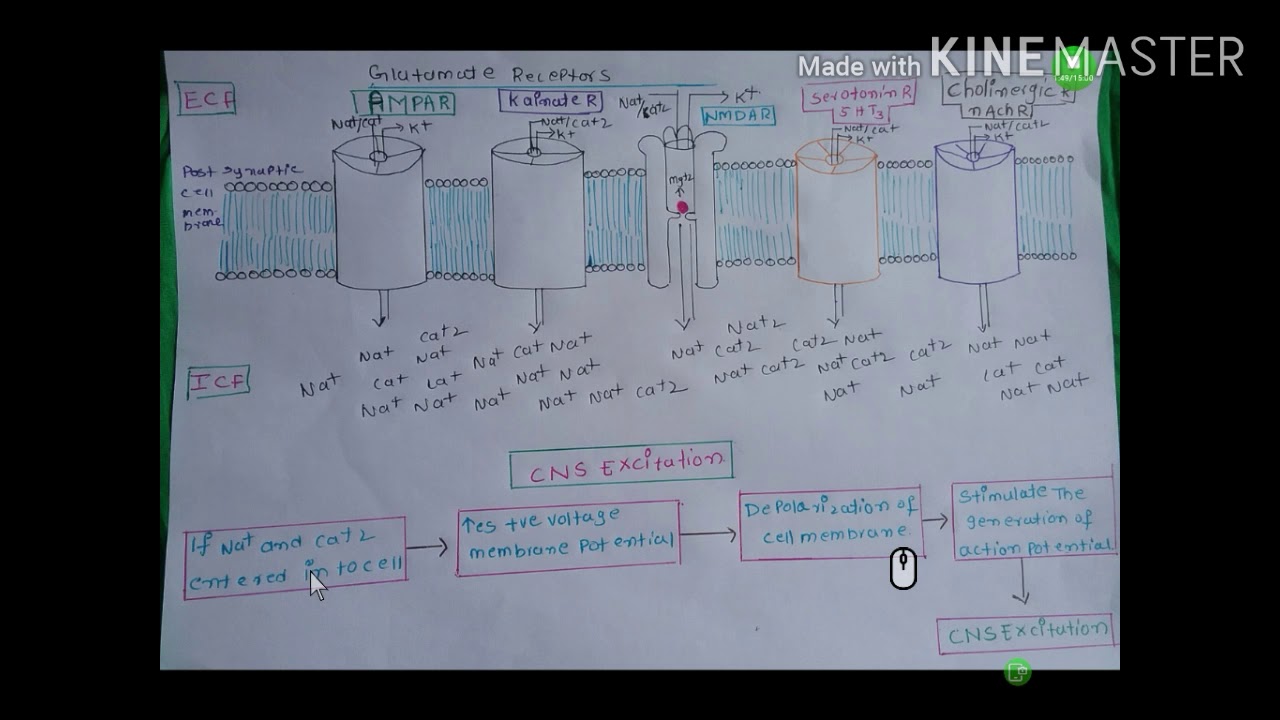 Made with KINEMASTER
Glutamate Receptors
ECF
AMPAR
Kainate R
NMDAR
Serotonin R
5HT3
Cholinergic R
nAchR
Na+/ca+
K+
Na+/ca+2
K+
Na+/ca+2
K+
Na+/ca+
K+
Na+/ca+2
K+
Post synaptic
cell
mem-
brane
mg+2
ca+2
Na+ Na+ Na+ ca+ Na+
Na+ ca+ ca+ Na+ Na+
Na+ Na+ Na+ Na+ Na+ ca+2
Na+2
Na+ ca+2 ca+2 Na+
Na+ ca+2 Na+ ca+2 ca+2 Na+ Na+
Na+ Na+ ca+ ca+
Na+ Na+
ICF
CNS Excitation
If Na+ and ca+2
entered in to cell
↑es +ve voltage
membrane potential
Depolarization of
cell membrane.
Stimulate The
generation of
action potential
CNS Excitation